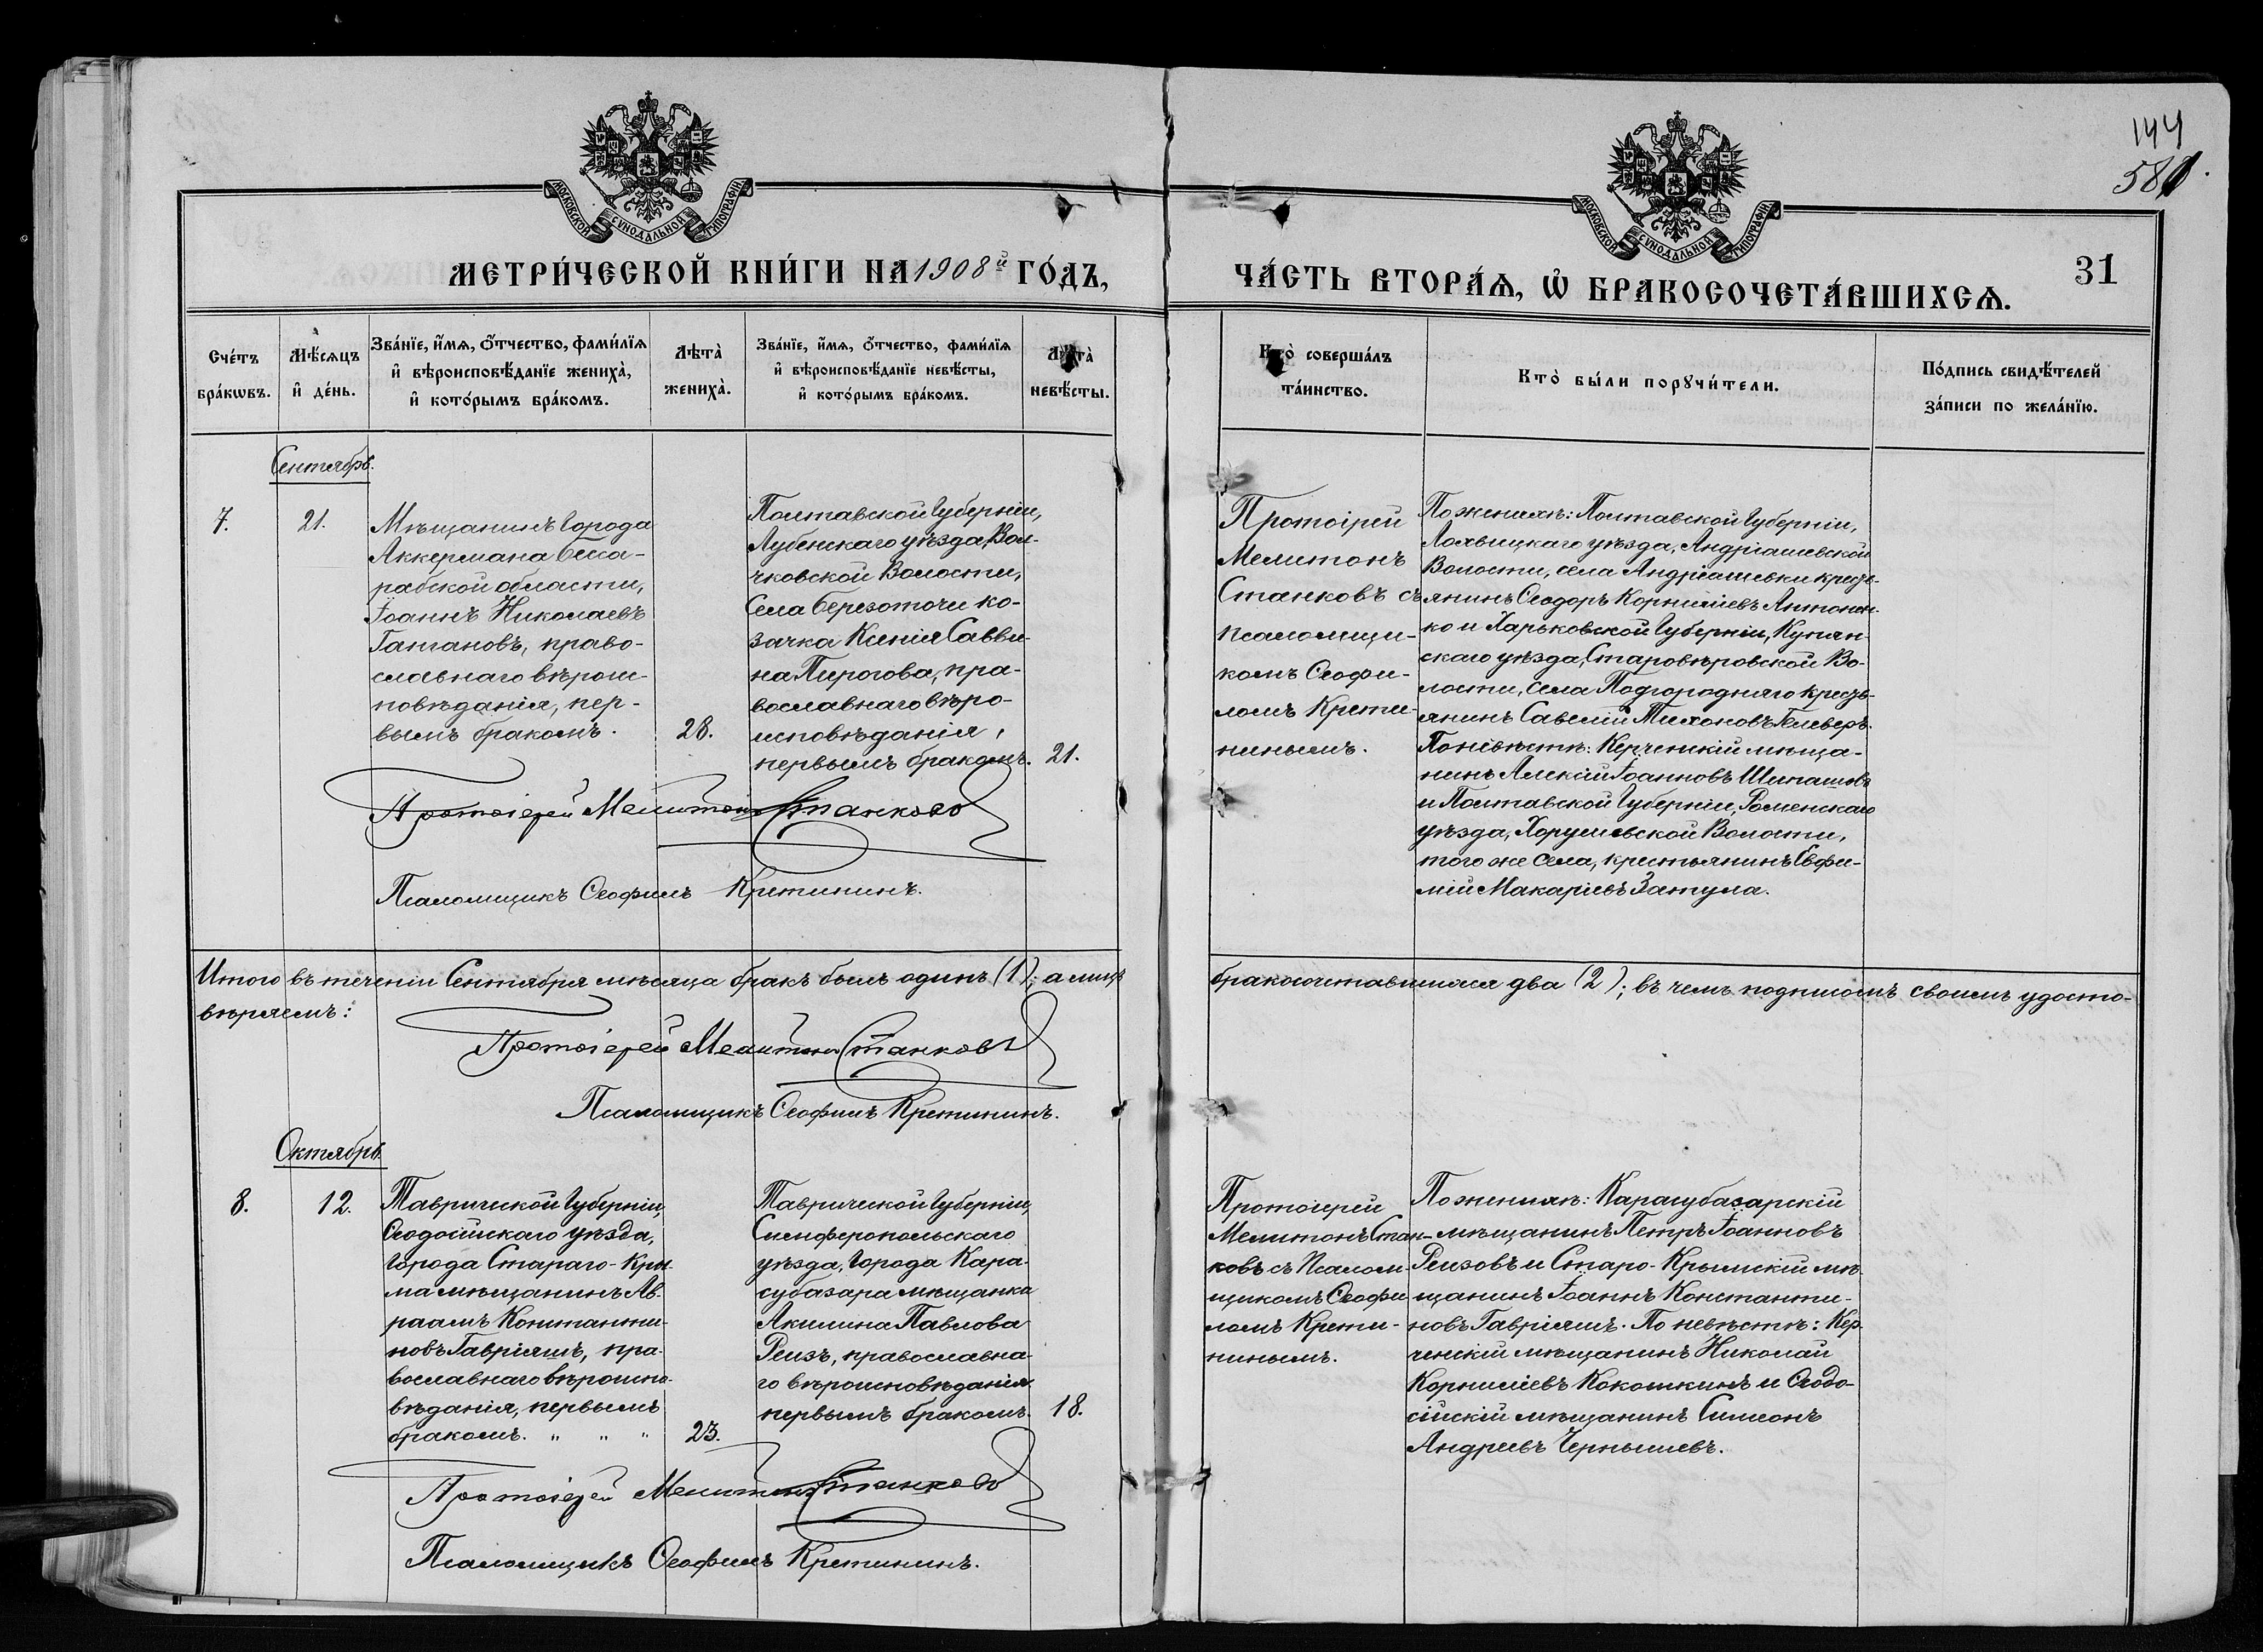 144
581.
МОСКОВСКОЙ СѴНОДАЛЬНОЙ ТИПОГРАФІИ
МОСКОВСКОЙ СѴНОДАЛЬНОЙ ТИПОГРАФІИ
МЕТРИ́ЧЕСКОЙ КНИ́ГИ НА 1908й ГО́ДЪ,
ЧА́СТЬ ВТОРА́Ѧ, Ѡ҆ БРАКОСОЧЕТА́ВШИХСѦ.
31
Сче́тъ
бра́кѡвъ.
Мѣ́сѧцъ
и҆ де́нь.
Зва́нїе, и҆́мѧ, ѻ҆́тчество, фами́лїѧ
и҆ вѣроисповѣ́данїе жениха̀,
и҆ кото́рымъ бра́комъ.
Лѣта̀
жениха̀.
Зва́нїе, и҆́мѧ, ѻ҆́тчество, фами́лїѧ
и҆ вѣроисповѣ́данїе невѣ́сты,
и҆ кото́рымъ бра́комъ.
Лѣта̀
невѣ́сты.
Кто̀ соверша́лъ
та́инство.
Кто̀ бы́ли порꙋчи́тели.
По́дпись свидѣ́телей
за́писи по жела́нїю.
Сентябрь.
7.
21.
Мѣщанинъ города
Аккермана Бесса-
рабской области,
Іоаннъ Николаевъ
Гангановъ, право-
славнаго вѣроис-
повѣданія, пер-
вымъ бракомъ.
28.
Полтавской Губерніи,
Лубенскаго уѣзда, Вол-
чковской Волости,
Села Березоточи ко-
зачка Ксенія Савви-
на Пирогова, пра-
вославнаго вѣро-
исповѣданія,
первымъ бракомъ.
21.
Протоіерей
Мелитонъ
Станковъ съ
псаломщи-
комъ Ѳеофи-
ломъ Крети-
нинымъ.
По женихѣ: Полтавской Губерніи,
Лохвицкаго уѣзда, Андріашевской
Волости, села Андріашевки кресть-
янинъ Ѳеодоръ Корниліевъ Антонен-
ко и Харьковской Губерніи, Купян-
скаго уѣзда, Старовѣровской Во-
лости, села Подгородняго кресть-
янинъ Савелій Тихоновъ Гелеверъ.
По невѣстѣ: Керченскій мѣща-
нинъ Алексій Іоанновъ Шипашовъ
и Полтавской Губерніи, Роменскаго
уѣзда, Хорушевской Волости,
того же Села, крестьянинъ Евфи-
мій Макаріевъ Затула.
Протоіерей Мелитонъ Станковъ
Псаломщикъ Ѳеофилъ Кретининъ.
Итого въ теченіи Сентября мѣсяца бракъ былъ одинъ (1); а лицъ бракосочетавшихся два (2); въ чемъ подписомъ своимъ удосто-
вѣряемъ:
Протоіерей Мелитонъ Станковъ
Псаломщикъ Ѳеофилъ Кретининъ.
Октябрь.
8.
12.
Таврической Губерніи,
Ѳеодосійскаго уѣзда,
города Стараго-Кры-
ма мѣщанинъ Ав-
раамъ Константи-
новъ Гавріяшъ, пра-
вославнаго вѣроиспо-
вѣданія, первымъ
бракомъ. " " "
23.
Таврической Губерніи,
Симферопольскаго
уѣзда, города Кара-
субазара мѣщанка
Акилина Павлова
Реизъ, православна-
го вѣроисповѣданія
первымъ бракомъ.
18.
Протоіерей
Мелитонъ Стан-
ковъ съ Псалом-
щикомъ Ѳеофи-
ломъ Крети-
нинымъ.
По женихѣ: Карасубазарскій
мѣщанинъ Петръ Іоанновъ
Реизовъ и Старо-Крымскій мѣ-
щанинъ Іоаннъ Константи-
новъ Гавріяшъ. По невѣстѣ: Кер-
ченскій мѣщанинъ Николай
Корниліевъ Кокошкинъ и Ѳеодо-
сійскій мѣщанинъ Симеонъ
Андреевъ Чернышевъ.
Протоіерей Мелитонъ Станковъ
Псаломщикъ Ѳеофилъ Кретининъ.